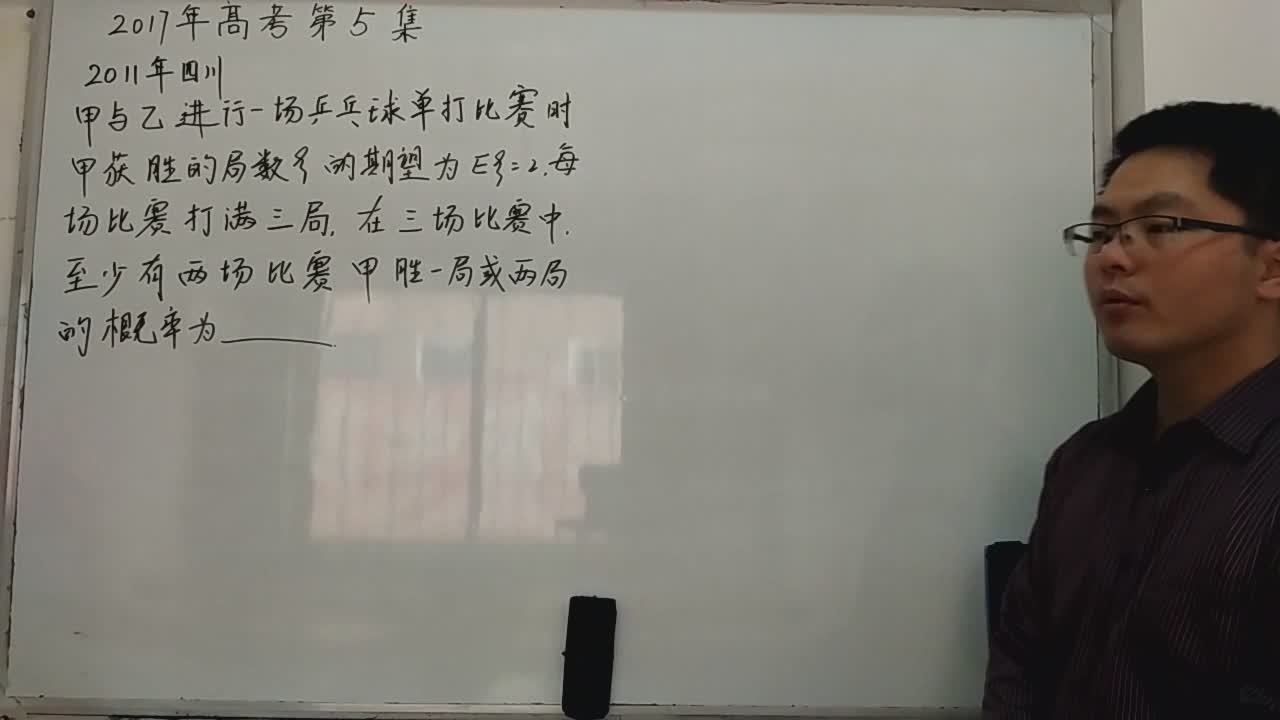 2017年高考第5集
2011年四川
甲与乙进行一场乒乓球单打比赛时
甲获胜的局数ξ的期望为Eξ=2.每
场比赛打满三局,在三场比赛中.
至少有两场比赛甲胜一局或两局
的概率为______.